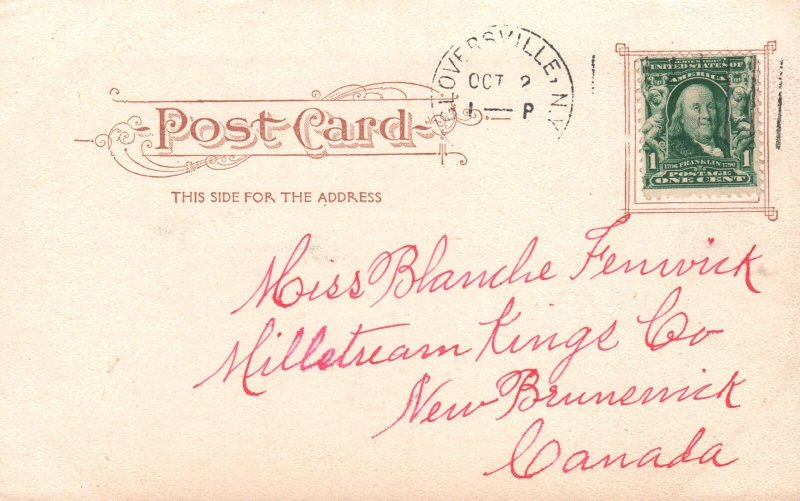 LOVERSVILLE, N.Y.
OCT 2
1 — P
SERIES 1902
UNITED STATES OF
AMERICA
1 1706 FRANKLIN 1790 1
POSTAGE
ONE CENT
Post Card
THIS SIDE FOR THE ADDRESS
Miss Blanche Fenwick
Millstream Kings Co
New Brunswick
Canada